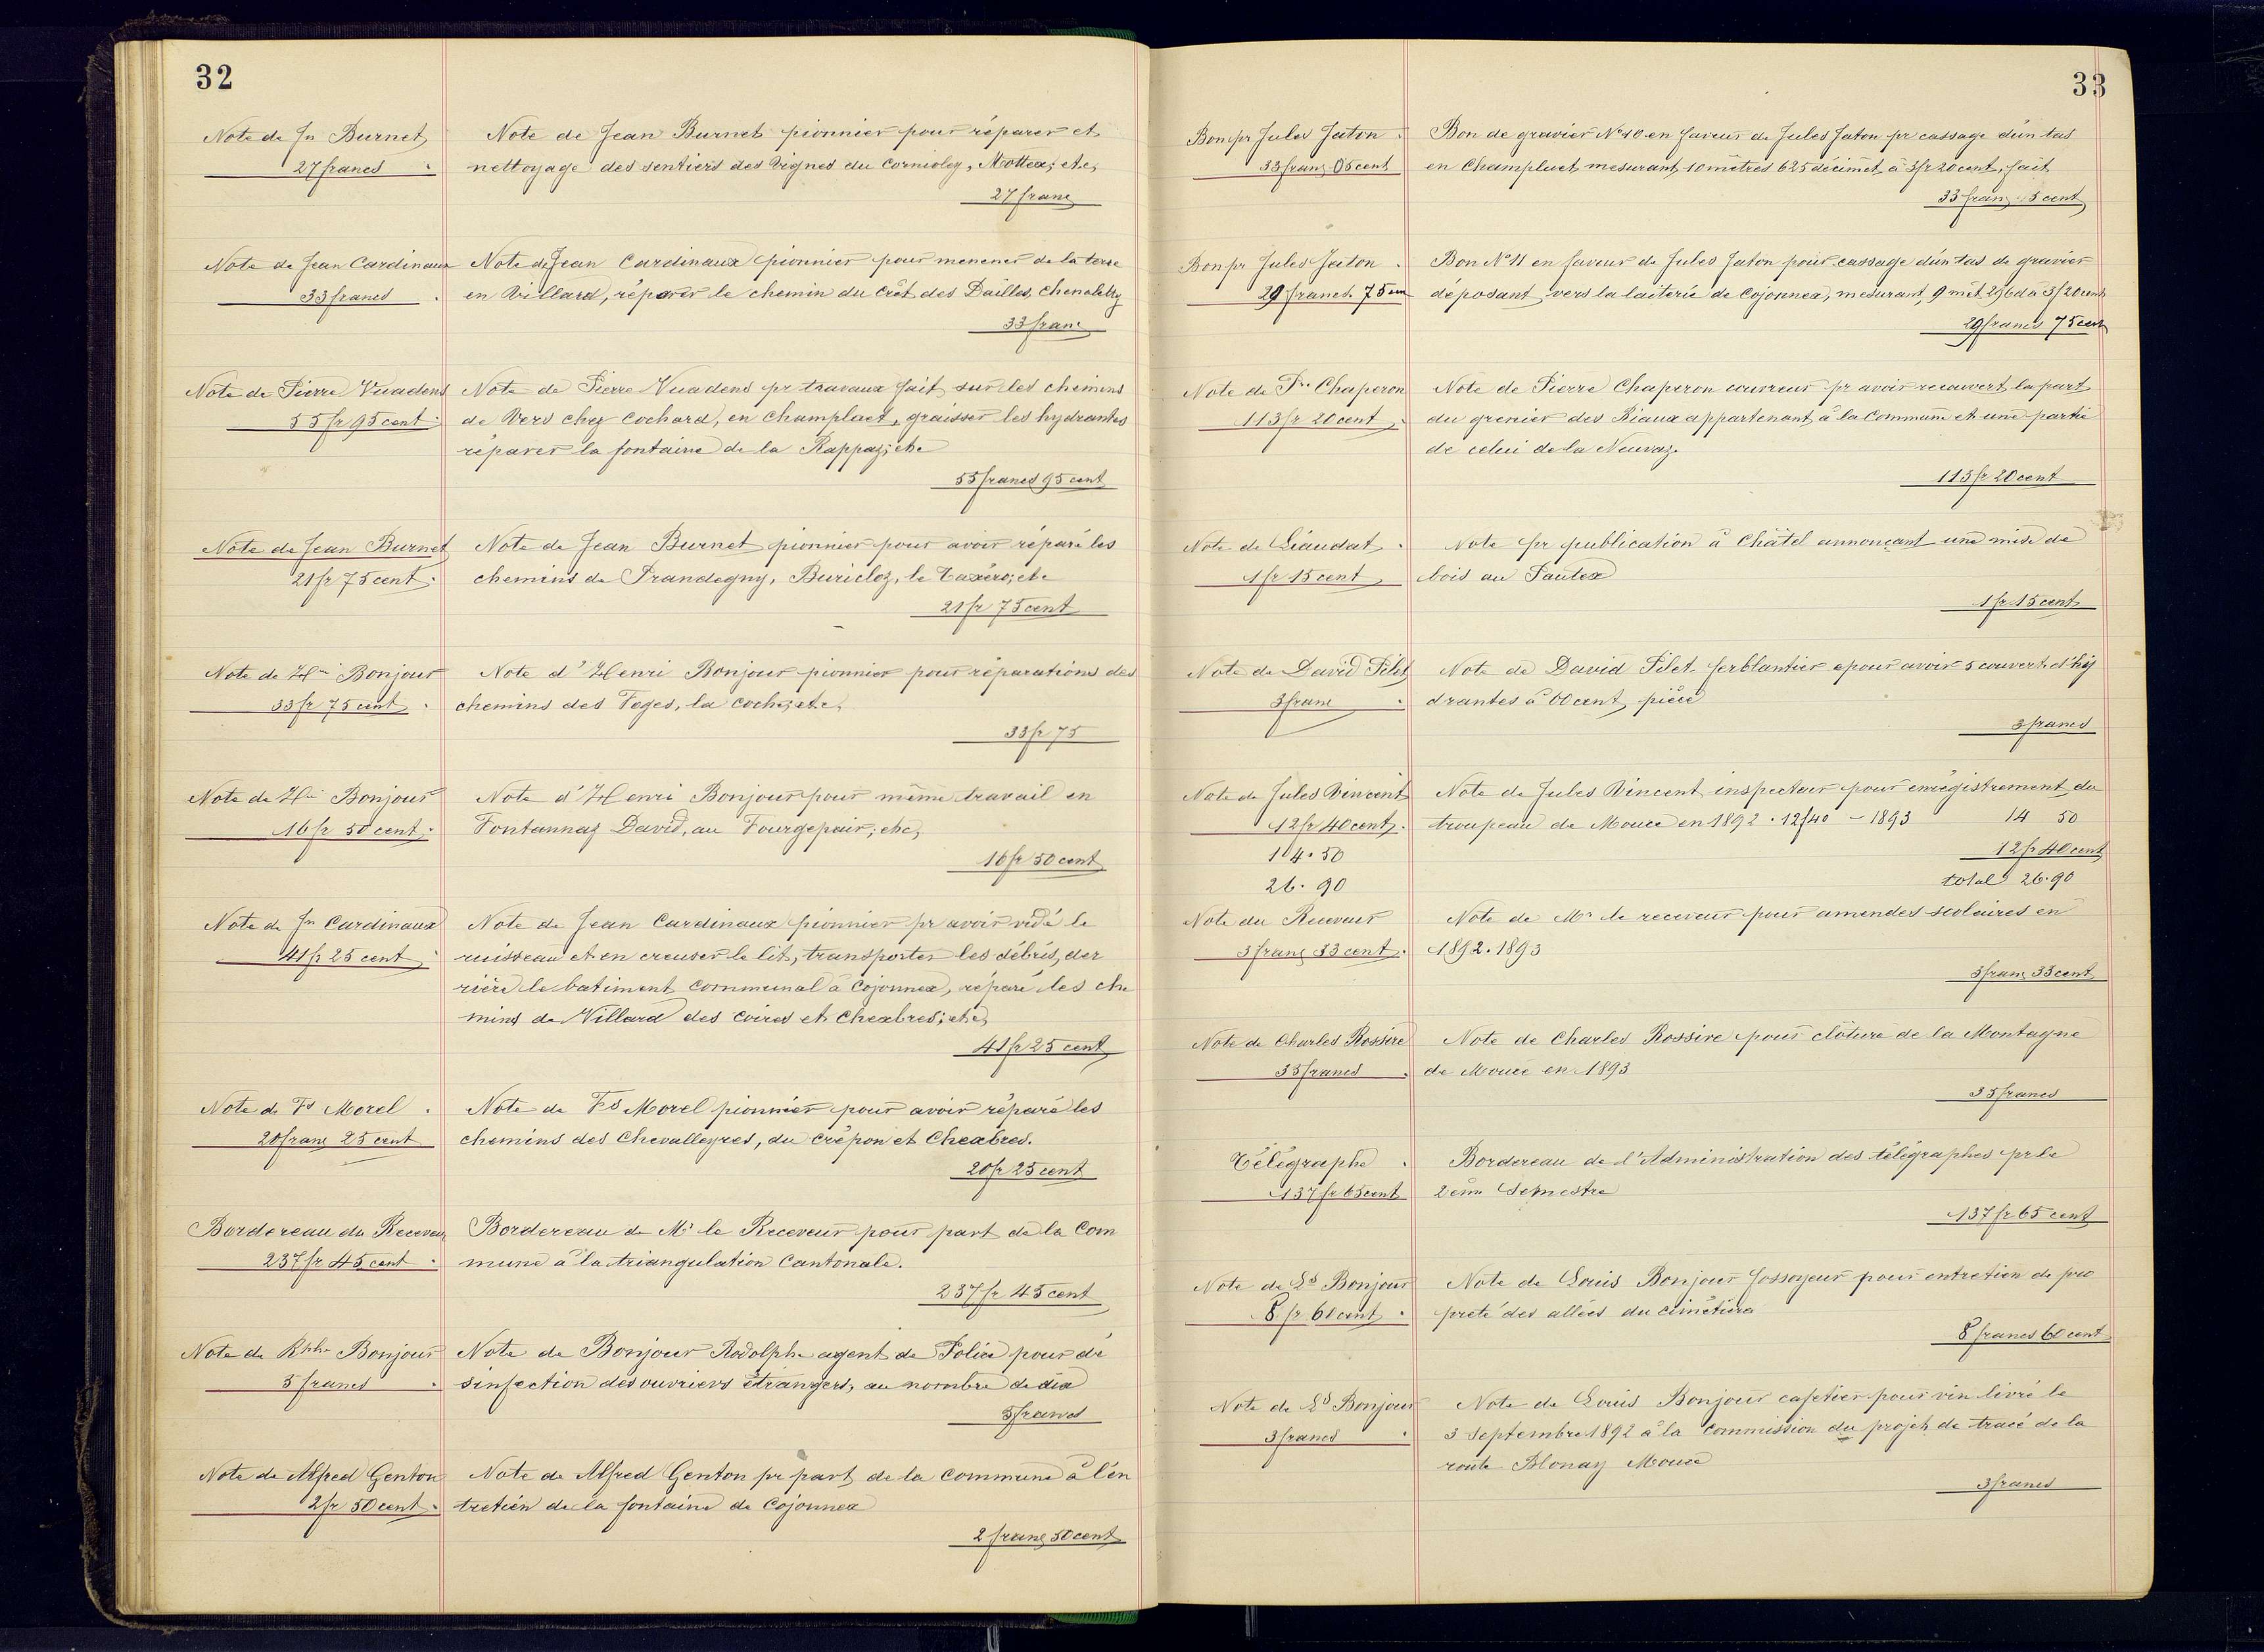 32
Note de Jn Burnet
27 francs
Note de Jean Burnet pionnier pour réparer et
nettoyage des sentiers des Vignes du Cornioley, Mottex; etc,
27 franc
Note de Jean Cardinaux
33 francs
Note de Jean Cardinaux pionnier pour menener de la terre
en Villard, réparer le chemin du Crêt des Dailles,
33 franc
Note de Pierre Vuadens
55 fr 95 cent
Note de Pierre Vuadens pr travaux fait sur les chemins
de Vers chez Cochard, en Champlaet, graisser les hydrantes
réparer la fontaine de la Rappaz; etc
55 francs 95 cent
Note de Jean Burnet
21 fr 75 cent
Note de Jean Burnet pionnier pour avoir réparé les
chemins de Prandegny, Buriclez, le etc
21 fr 75 cent
Note de Hri Bonjour
33 fr 75 cent
Note d'Henri Bonjour pionnier pour réparations des
chemins des Feges, la etc,
33 fr 75
Note de Hri Bonjour
16 fr 50 cent
Note d'Henri Bonjour pour même travail en
Fontannaz David, au Fourgepair; etc,
16 fr 50 cent
Note de Jn Cardinaux
41 fr 25 cent
Note de Jean Cardinaux pionnier pr avoir vidé le
ruisseau et en creuser le lit, transporter les débris, der
rière le batiment communal à Cojonnex, réparé les che
mins de Villard des Coires et Chexbres; etc,
41 fr 25 cent
Note de Fs Morel
20 franc 25 cent
Note de Fs Morel pionnier pour avoir réparé les
chemins des Chevalleyres, du Crépon et Chexbres.
20 fr 25 cent
Bordereau du Receveur
237 fr 45 cent
Bordereau de Mr le Receveur pour part de la Com
mune à la triangulation Cantonale.
237 fr 45 cent
Note de Rphe Bonjour
5 francs
Note de Bonjour Rodolphe agent de Police pour dé
sinfection des ouvriers étrangers, au nombre de dix
5 francs
Note de Alfred Genton
2 fr 50 cent
Note de Alfred Genton pr part de la commune à l'en
tretien de la fontaine de Cojonnex
2 franc 50 cent
33
Bon pr Jules Jaton
33 franc 95 cent
Bon de gravier No 10 en faveur de Jules Jaton pr cassage d'un tas
en Champluet mesurant 10 mètres 625 décimet à 3 fr 20 cent, fait
33 franc 95 cent
Bon pr Jules Jaton
29 francs 75 cen
Bon No 11 en faveur de Jules Jaton pour cassage d'un tas de gravier
déposant vers la laiterie de Cojonnex, mesurant 9 mèt 296 d à 3 f 20 cent
29 francs 75 cent
Note de Pre Chaperon
113 fr 20 cent
Note de Pierre Chaperon couvreur pr avoir recouvert la part
du grenier des Biaux appartenant à la Commune et une partie
de celui de la Neuvaz.
113 fr 20 cent
Note de Liaudat
1 fr 15 cent
Note pr publication à Châtel annonçant une mise de
bois au Pautex
1 fr 15 cent
Note de David Pilet
3 franc
Note de David Pilet ferblantier pour avoir 5 couvert. d'hy
drantes à 60 cent pièce
3 francs
Note de Jules Vincent
12 fr 40 cent
14.50
26.90
Note de Jules Vincent inspecteur pour enrégistrement du
troupeau de Mouce en 1892 . 12f40 - 1893 14 50
12 fr 40 cent
total 26.90
Note du Receveur
3 franc 33 cent
Note de Mr le receveur pour amendes scolaires en
1892.1893
3 franc 33 cent
Note de Charles Rossire
35 francs
Note de Charles Rossire pour clôture de la Montagne
de Mouce en 1893
35 francs
Télégraphe
137 fr 65 cent
Bordereau de l'Administration des télégraphes pr le
2ème Semestre
137 fr 65 cent
Note de Ls Bonjour
8 fr 60 cent
Note de Louis Bonjour fossoyeur pour entretien de pro
preté des allées du cimetière
8 francs 60 cent
Note de Ls Bonjour
3 francs
Note de Louis Bonjour cafetier pour vin livré le
3 Septembre 1892 à la Commission du projet de tracé de la
route Blonay Mouce
3 francs